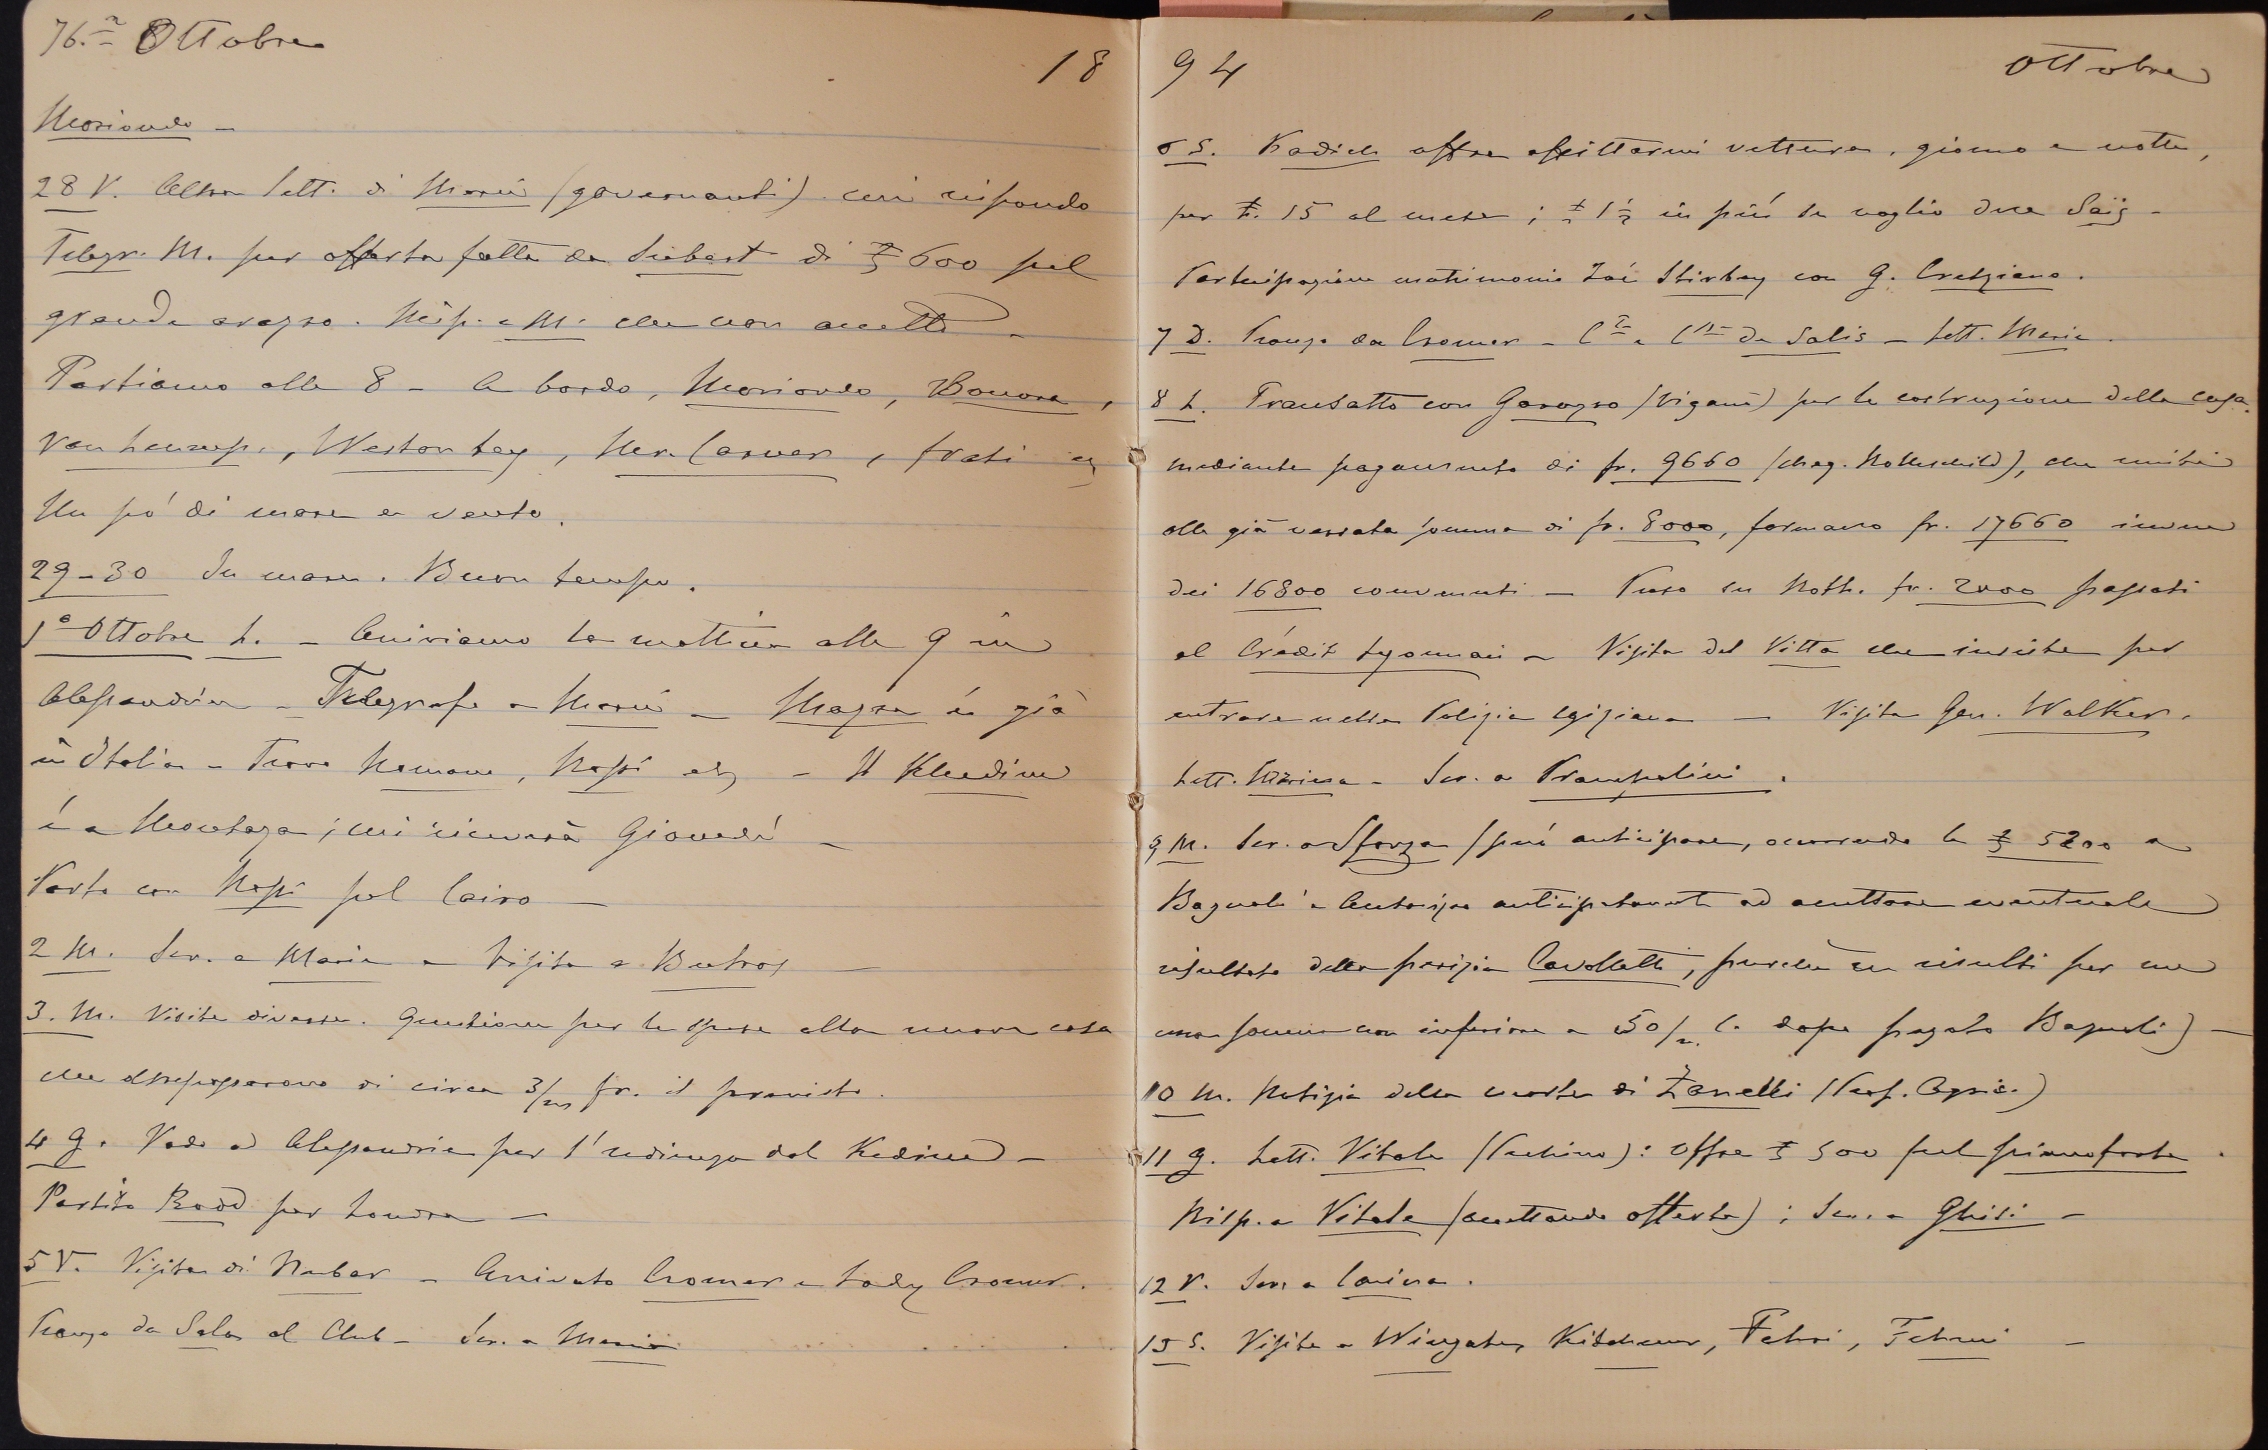 76.a Ottobre
18
Moriondo –
28 V. Altra lett. di Maria (governanti) cui rispondo
Telegr. M. per offerta fatta da Siebert di £ 600 pel
grande arazzo. Risp. a M. che non accetto –
Partiamo alle 8 – A bordo, Moriondo, Bonora,
Van Lennep., Weston bey, Mr. Carver, frati
Un pó di mare e vento.
29–30 In mare. Buon tempo.
1° Ottobre L. – Arriviamo la mattina alle 9 in
Alessandria – Telegrafo a Maria – Mazza é già
in Italia – Trovo Romano, Rossi – Il Khedive
é a Montaza; mi riceverà Giovedí –
Parto con Rossi pel Cairo –
2 M. Scr. a Maria – Visita a Butros –
3. M. Visite diverse. Questione per le spese alla nuova casa
che oltrepassarono di circa 3/m fr. il previsto.
4 G. Vado ad Alessandria per l'udienza dal Kedive –
Partito Rodd per Londra –
5 V. Visita di Nubar – Arrivato Cromer e Lady Cromer.
Pranzo da Sala al Club – Scr. a Maria
94
Ottobre
6 S. Kadich offre affittarmi vettura, giorno e notte,
per £. 15 al mese; £ 1 ½ in piú se voglio due Saïs –
Partecipazione matrimonio Zoé Stirbey con G. Cretziano.
7 D. Pranzo da Cromer – Cte e Csse de Salis – Lett. Maria.
8 L. Transatto con Garozzo (Viganò) per la costruzione della casa
mediante pagamento di fr. 9660 (cheq. Rothschild), che uniti
alla già versata somma di fr. 8000, formano fr. 17660 invece
dei 16800 convenuti – Preso su Roth. fr. 2000 passati
al Crédit Lyonnais – Visita del Vitta che insiste per
entrare nella Polizia egiziana – Visita Gen. Walker.
Lett. Marina – Scr. a Trampolini.
9 M. Scr. a Sforza (può anticipare, occorrendo le £ 5200 a
Bagnoli e Autorizzo anticipatamente ad accettare eventuale
risultato della perizia Cavalletti, purché ne risulti per me
una somma non inferiore a 50/m L. dopo pagato Bagnoli) –
10 M. Notizia della morte di Zanelli (Prof. Agric.)
11 G. Lett. Vitale (Pechino): offre £ 500 pel pianoforte.
Risp. a Vitale (accettando offerta); Scr. a Ghisi –
12 V. Scr. a Carina.
13 S. Visite a Wingate, Kitchener, Fakri, Fehmi –